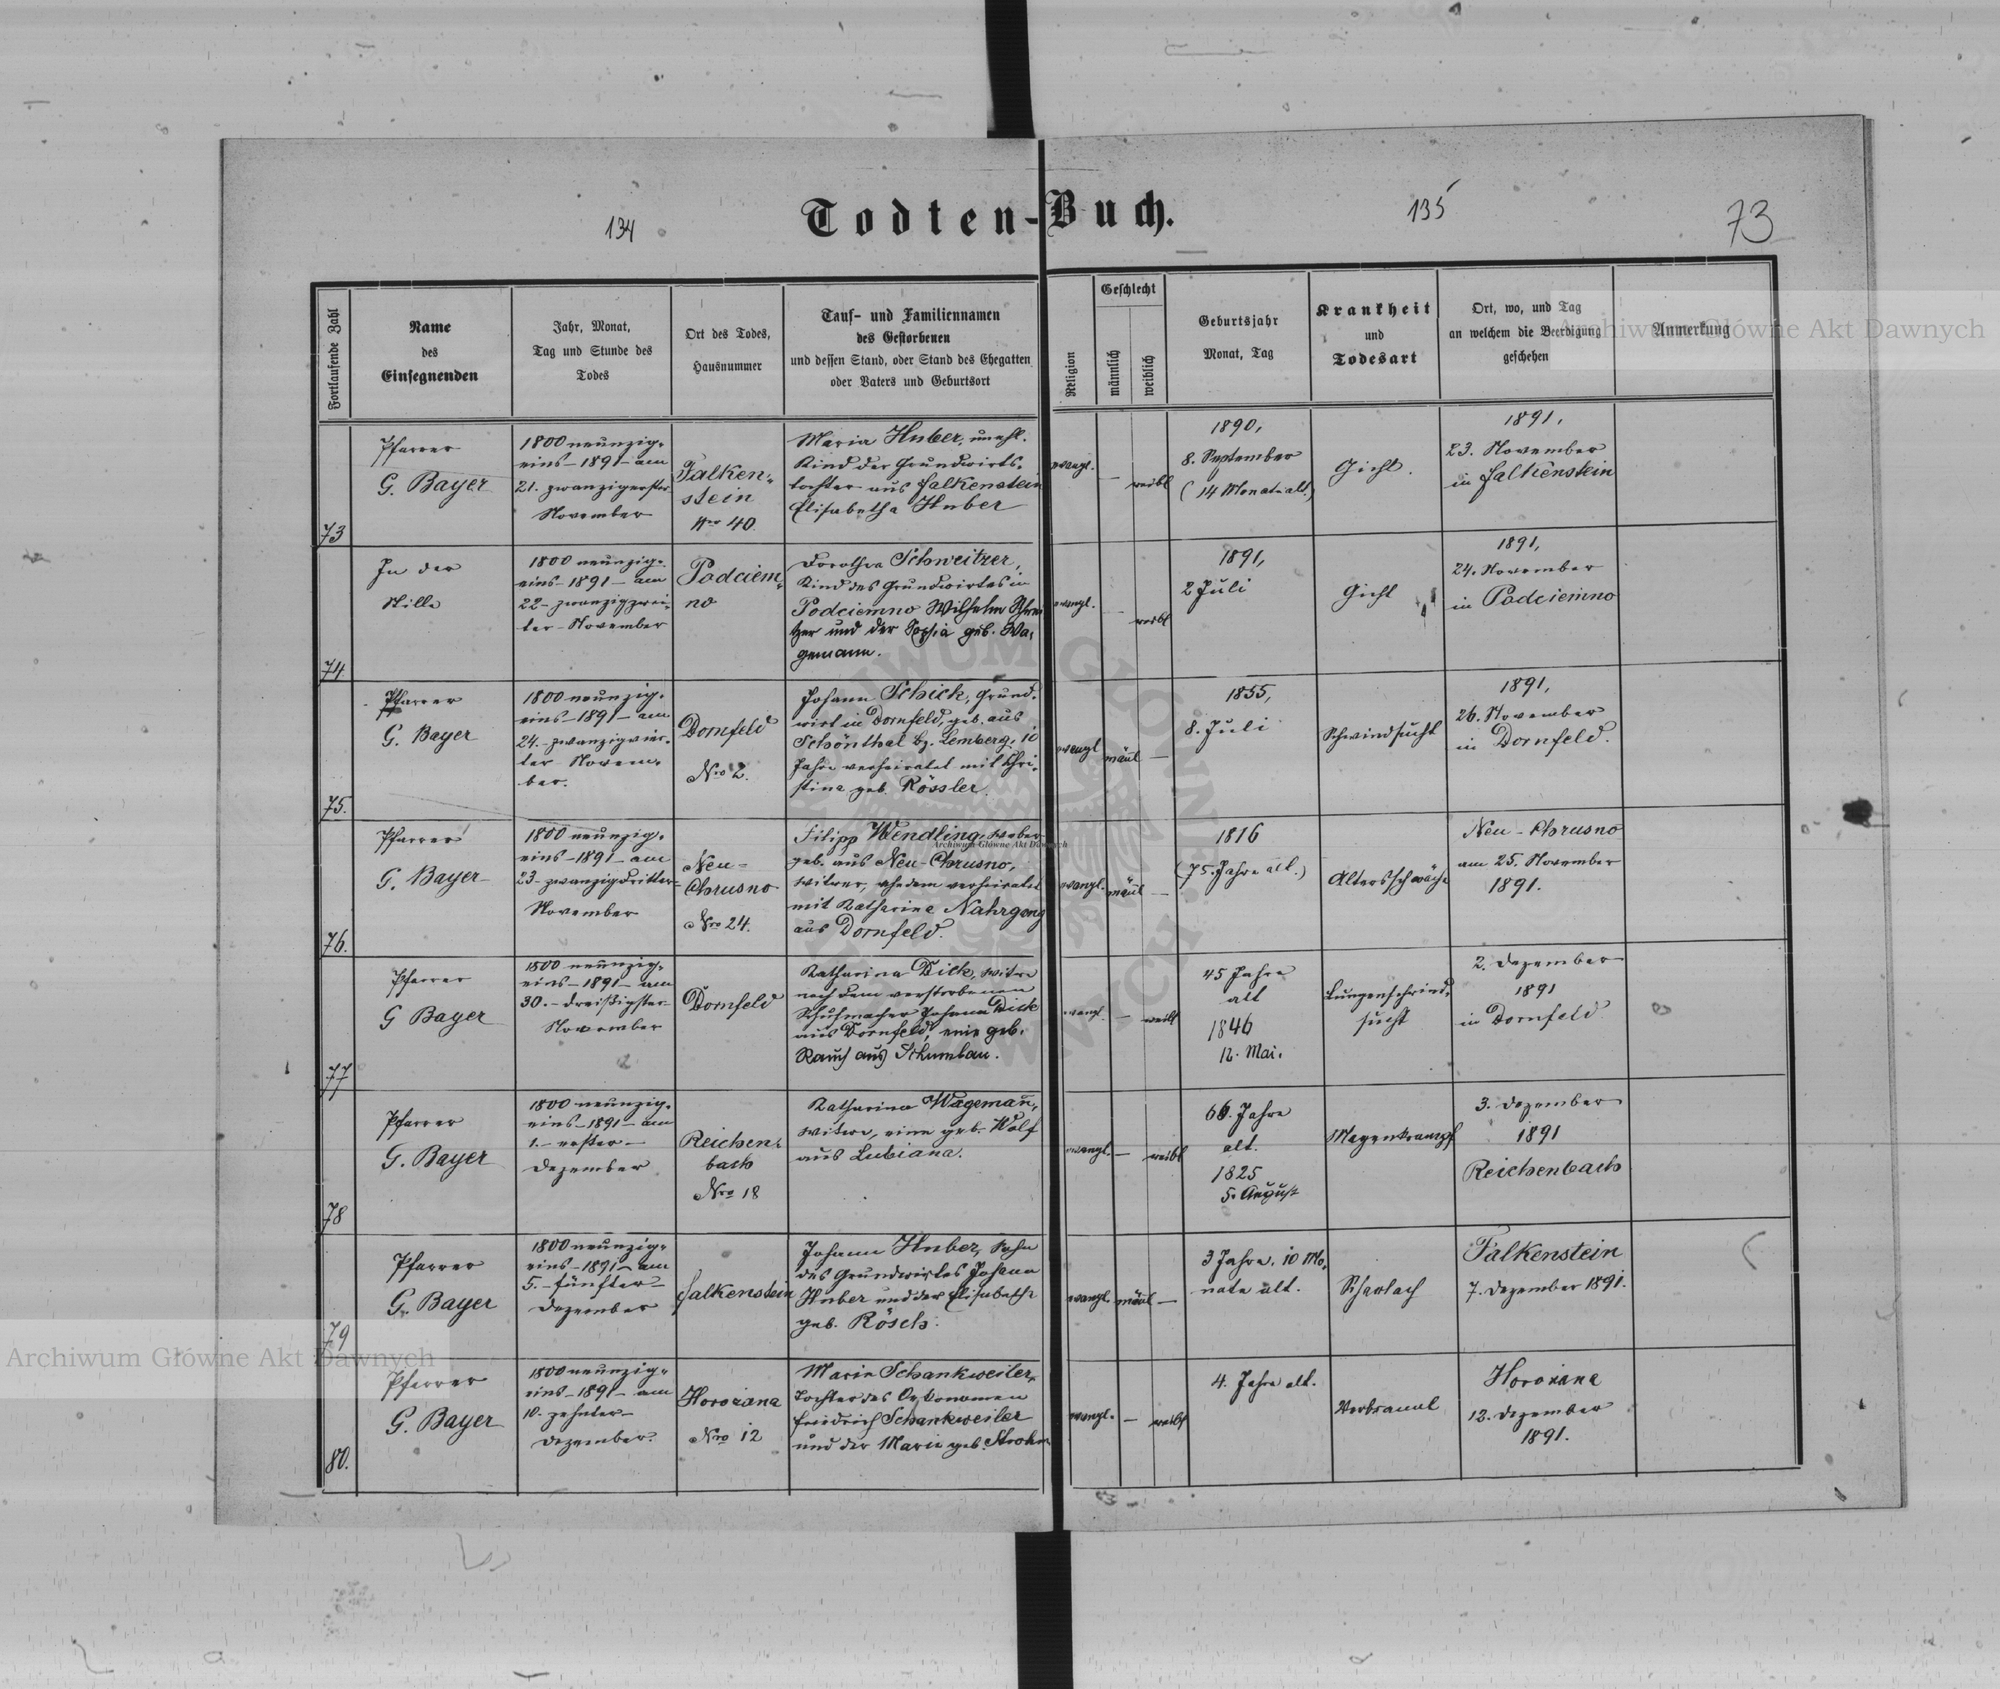 134
Todten-Buch.
135
73
Fortlaufende Zahl
Name
des
Einsegnenden
Jahr, Monat,
Tag und Stunde des
Todes
Ort des Todes,
Hausnummer
Tauf- und Familiennamen
des Gestorbenen
und dessen Stand, oder Stand des Ehegatten
oder Vaters und Geburtsort
Religion
Geschlecht
männlich
weiblich
Geburtsjahr
Monat, Tag
Krankheit
und
Todesart
Ort, wo, und Tag
an welchem die Beerdigung
geschehen
Anmerkung
Archiwum Główne Akt Dawnych
73
Pfarrer
G. Bayer
1800 neunzig-
eins - 1891 - am
21. zwanzigerster
November
Falken-
stein
Nro 40.
Maria Huber, unehl.
Kind der Grundwirts-
tochter aus Falkenstein
Elisabetha Huber
evangl.
—
weibl
1890,
8. September
(14 Monate alt.)
Gicht.
1891,
23. November
in Falkenstein
74
In der
Stille
1800 neunzig-
eins - 1891 - am
22 - zwanzigzwei-
ter - November
Podciem-
no
Dorothea Schweitzer,
Kind des Grundwirtes in
Podciemno Wilhelm Schwei
tzer und der Sophia geb. Wa-
gemann.
evangl.
—
weibl
1891,
2 Juli
Gicht
1891,
24. November
in Podciemno
75.
Pfarrer
G. Bayer
1800 neunzig-
eins - 1891 - am
24. - zwanzigvier-
ter Novem-
ber.
Dornfeld
Nro 2.
Johann Schick, Grund-
wirt in Dornfeld, geb. aus
Schönthal bz. Lemberg, 10
Jahre verheiratet mit Chri-
stina geb. Rössler.
evengl
mänl
—
1855,
8. Juli
Schwindsucht
1891,
26. November
in Dornfeld.
76.
Pfarrer
G. Bayer
1800 neunzig-
eins - 1891 - am
23 - zwanzigdritter
November
Neu-
Chrusno
Nro 24.
Filipp Wendling, Weber
geb. aus Neu-Chrusno,
Witwer, ehedem verheiratet
mit Katharina Nahrgang
aus Dornfeld.
evangl.
mänl
—
1816
(75. Jahre alt.)
Altersschwäche
Neu-Chrusno
am 25. November
1891.
Archiwum Główne Akt Dawnych
77
Pfarrer
G Bayer
1800 neunzig-
eins - 1891 - am
30. - dreißigster
November
Dornfeld
Katharina Dick, Witwe
nach dem verstorbenen
Schuhmacher Johann Dick
aus Dornfeld, eine geb.
Rauch aus Schumlau.
evangl.
—
weibl
45 Jahre
alt
1846
12. Mai.
Lungenschwind-
sucht
2. Dezember
1891
in Dornfeld
78
Pfarrer
G. Bayer
1800 neunzig-
eins - 1891 - am
1. - erster -
Dezember
Reichen-
bach
Nro 18
Katharina Wagemañ,
Witwe, eine geb. Wolf
aus Lubiana.
evangl.
—
weibl
66. Jahre
alt.
1825
5. August
Magenkrampf
3. Dezember
1891
Reichenbach
79
Pfarrer
G. Bayer
1800 neunzig-
eins - 1891 - am
5. - fünfter -
Dezember
Falkenstein
Johann Huber, Sohn
des Grundwirtes Johann
Huber und der Elisabeth
geb. Rösch.
evangl.
mänl
—
3 Jahre, 10 Mo-
nate alt.
Scharlach
Falkenstein
7. Dezember 1891.
Archiwum Główne Akt Dawnych
80.
Pfarrer
G. Bayer
1800 neunzig-
eins - 1891 - am
10. zehnter -
Dezember.
Horozana
Nro 12
Marie Schankweiler,
Tochter des Oekonomen
Friedrich Schankweiler
und der Marie geb. Strohm
evangl.
—
weibl
4. Jahre alt.
Verbrannt
Horozana
12. Dezember
1891.